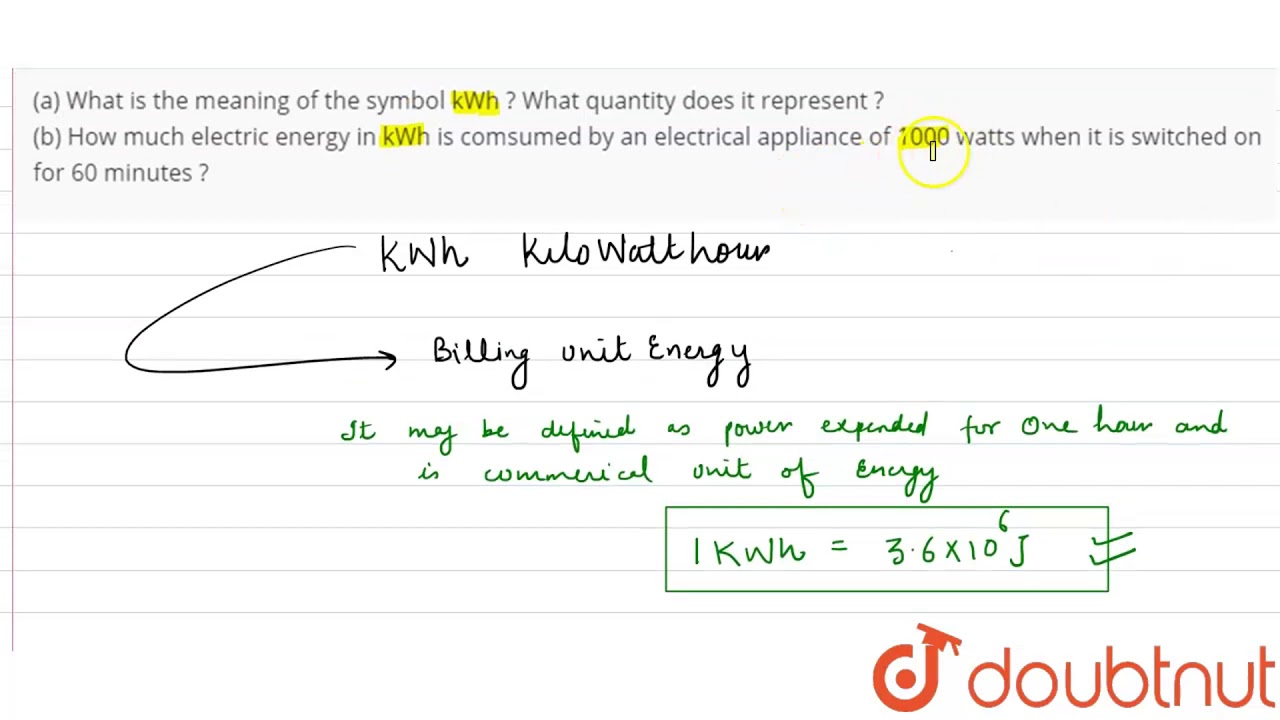 (a) What is the meaning of the symbol kWh ? What quantity does it represent ?
(b) How much electric energy in kWh is comsumed by an electrical appliance of 1000 watts when it is switched on
for 60 minutes ?
KWh KiloWatt hour
Billing unit Energy
It may be defined as power expended for One hour and
is commerical unit of Energy
1 KWh = 3.6×10⁶ J
doubtnut